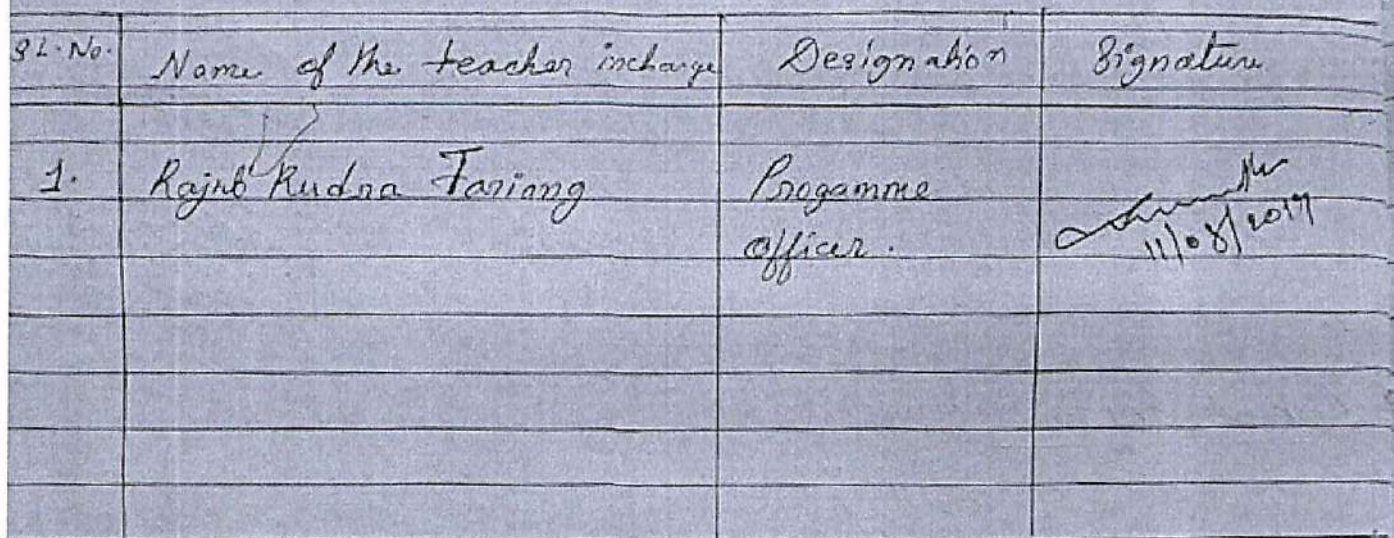 SL. No. Name of the teacher incharge Designation Signature
1. Rajib Rudra Tariang Progamme
officer.
11/08/2017